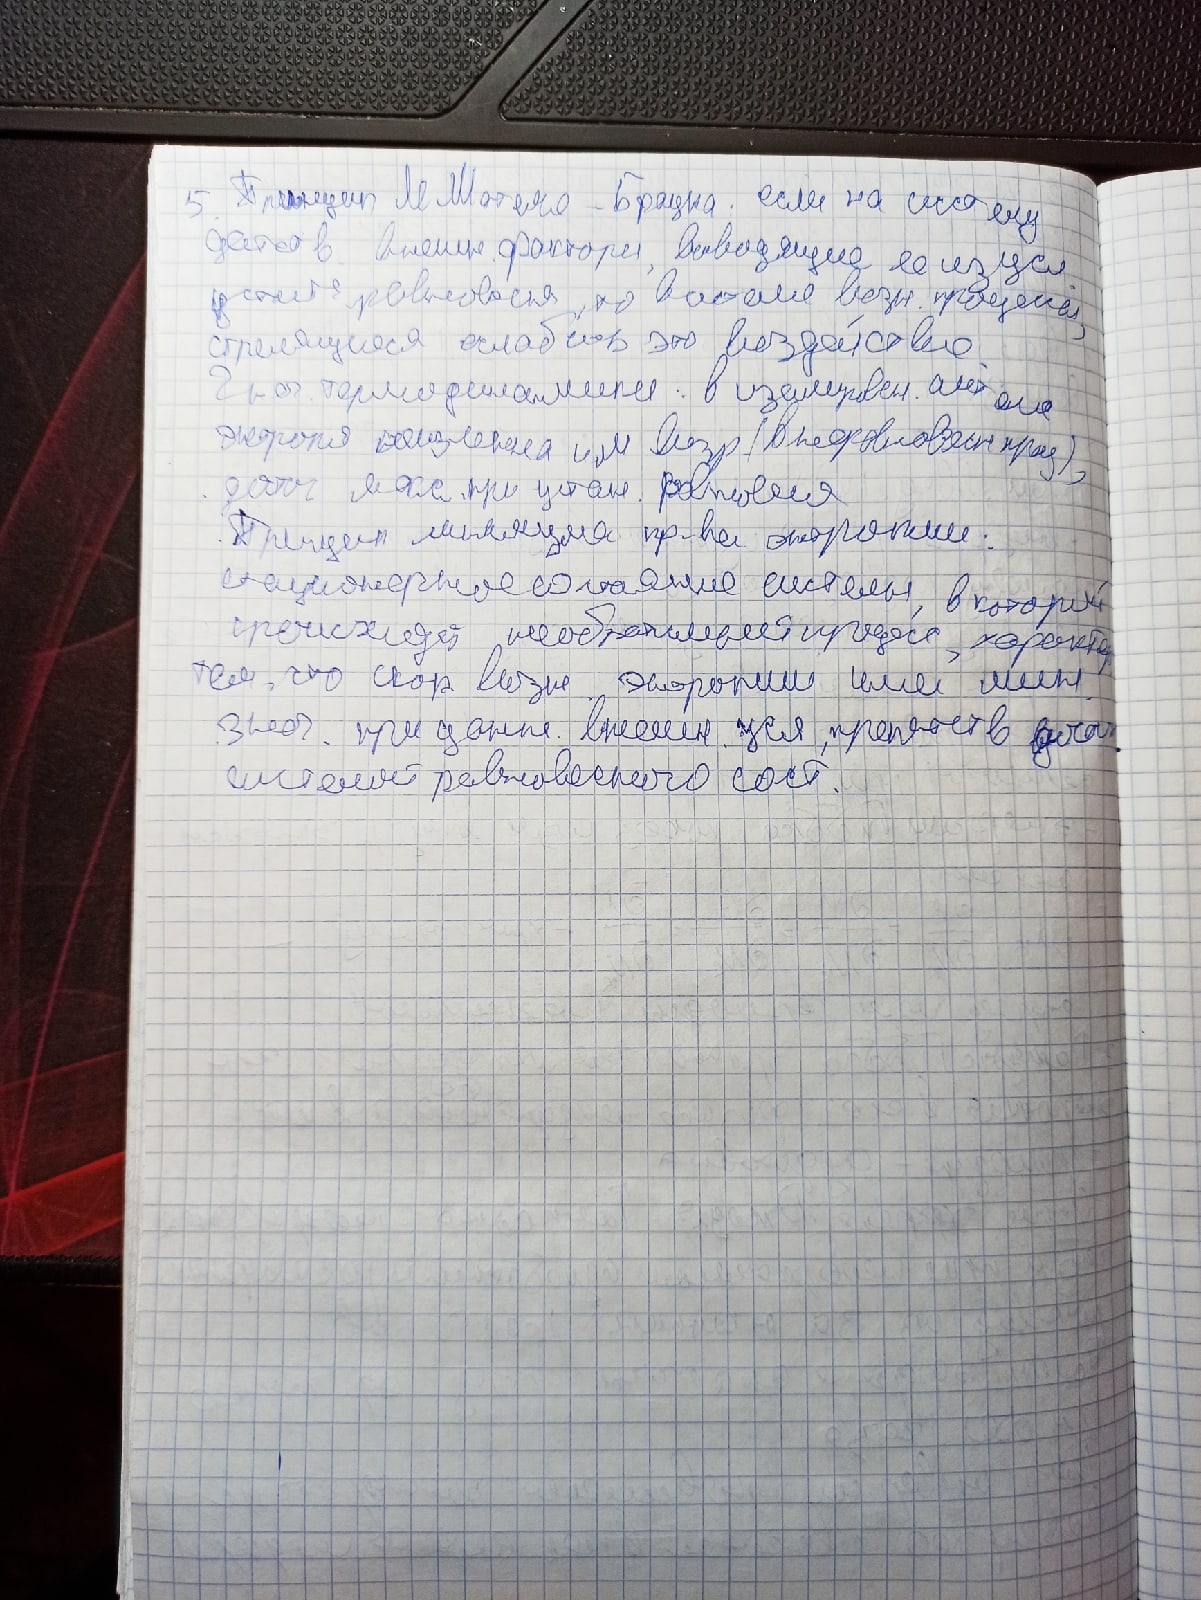 5. Принцип Ле Шателье - Брауна: если на систему
действ. внешн. факторы, выводящие ее из усл.
устойч. равновесия, то в системе возн. процессы,
стремящиеся ослабить это воздействие.
2 нач. термодинамики: в изолирован. системе
энтропия неизменна или возр (в неравновесн проц),
дост макс. при устан. равновесия
Принцип минимума пр-ва энтропии:
стационарное состояние системы, в которой
происходят необратимый процесс, характер
тем, что скор возн. энтропии имеет мин.
знач. при данн. внешн усл, препятств
системой равновесного сост.